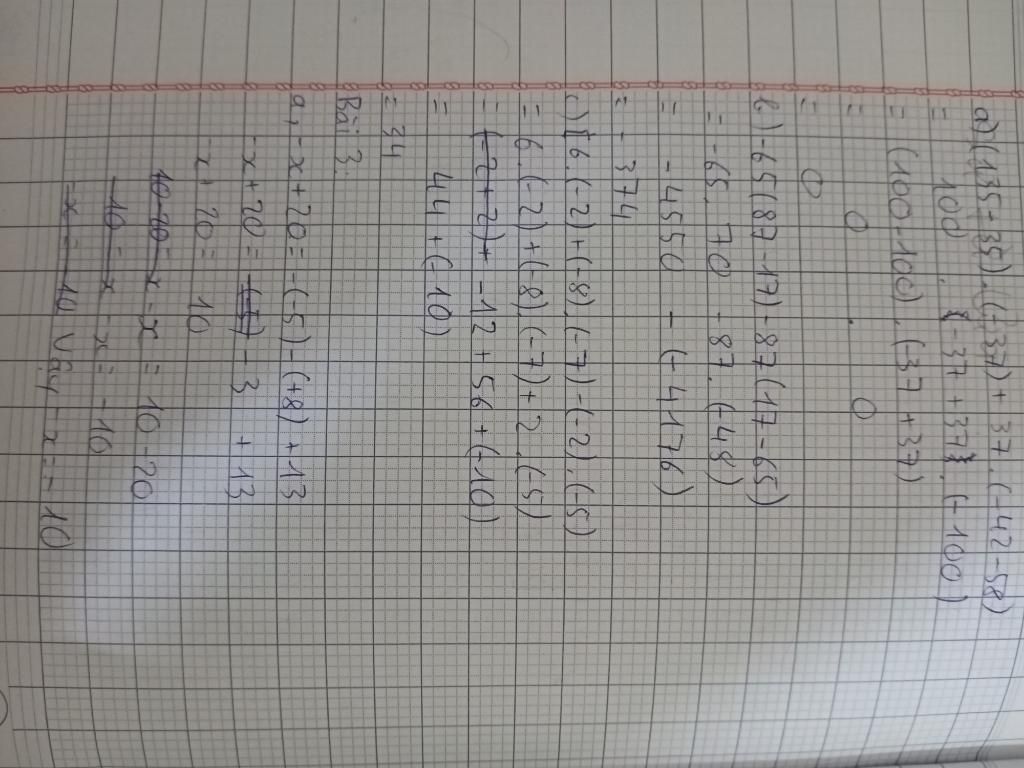 a) (135-35).(-37) + 37.(-42-58)
= 100 . [-37 + 37]. (-100)
= (100-100).(-37+37)
= 0 . 0
= 0
b) -65(87-17)-87(17-65)
= -65. 70 - 87. (-48)
= -4550 - (-4176)
= -374
c) [6.(-2)+(-8).(-7)-(-2).(-5)
= 6.(-2)+(-8).(-7)+2.(-5)
= -12+56+(-10)
= 44 + (-10)
= 34
Bài 3:
a, -x+20=-(5)-(+8)+13
-x+20= -3 +13
-x+20= 10
-x = 10-20
-x = -10
Vậy -x = -10